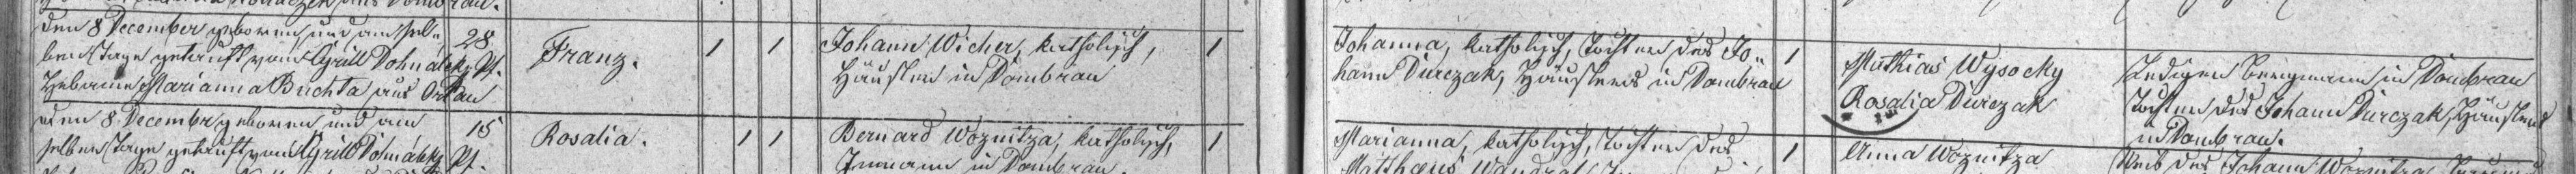 den 8 December geboren und am sel-
ben Tage getauft vom Cyrill Dohnálek Pf.
Hebame Marianna Buchta aus Orlau
28
Franz.
1
1
Johann Wicher, katholisch,
Häusler in Dombrau
1
Johanna, katholisch, Tochter des Jo-
hann Durczak, Häuslers in Dombrau
1
Mathias Wysocky
Rosalia Durczak
Lediger Bergmann in Dombrau
Tochter des Johann Durczak, Häuslers
in Dombrau.
den 8 December geboren und am
selben Tage getauft vom Cyrill Dohnálek Pf.
15
Rosalia.
1
1
Bernard Woznitza, katholisch,
Inmann in Dombrau.
1
Marianna, katholisch, Tochter des
Matthæus Wandrol
1
Anna Woznitza
Weib des Johann Woznitza